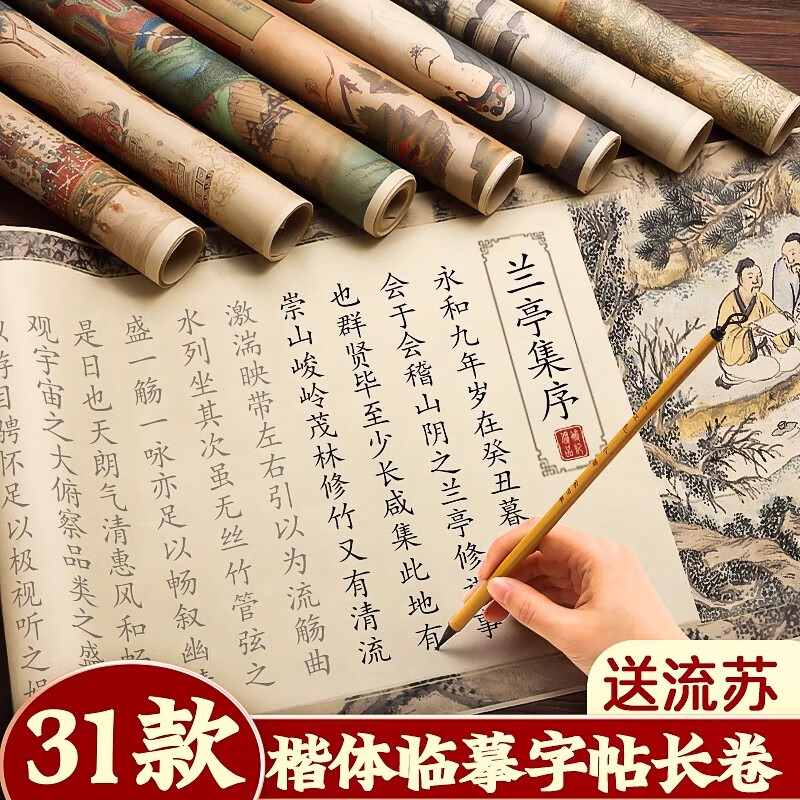 兰亭集序
永和九年岁在癸丑暮
会于会稽山阴之兰亭修事
也群贤毕至少长咸集此地有
崇山峻岭茂林修竹又有清流
激湍映带左右引以为流觞曲
水列坐其次虽无丝竹管弦之
盛一觞一咏亦足以畅叙幽
是日也天朗气清惠风和畅
观宇宙之大俯察品类之盛
游目骋怀足以极视听之娱
送流苏
31款
楷体临摹字帖长卷